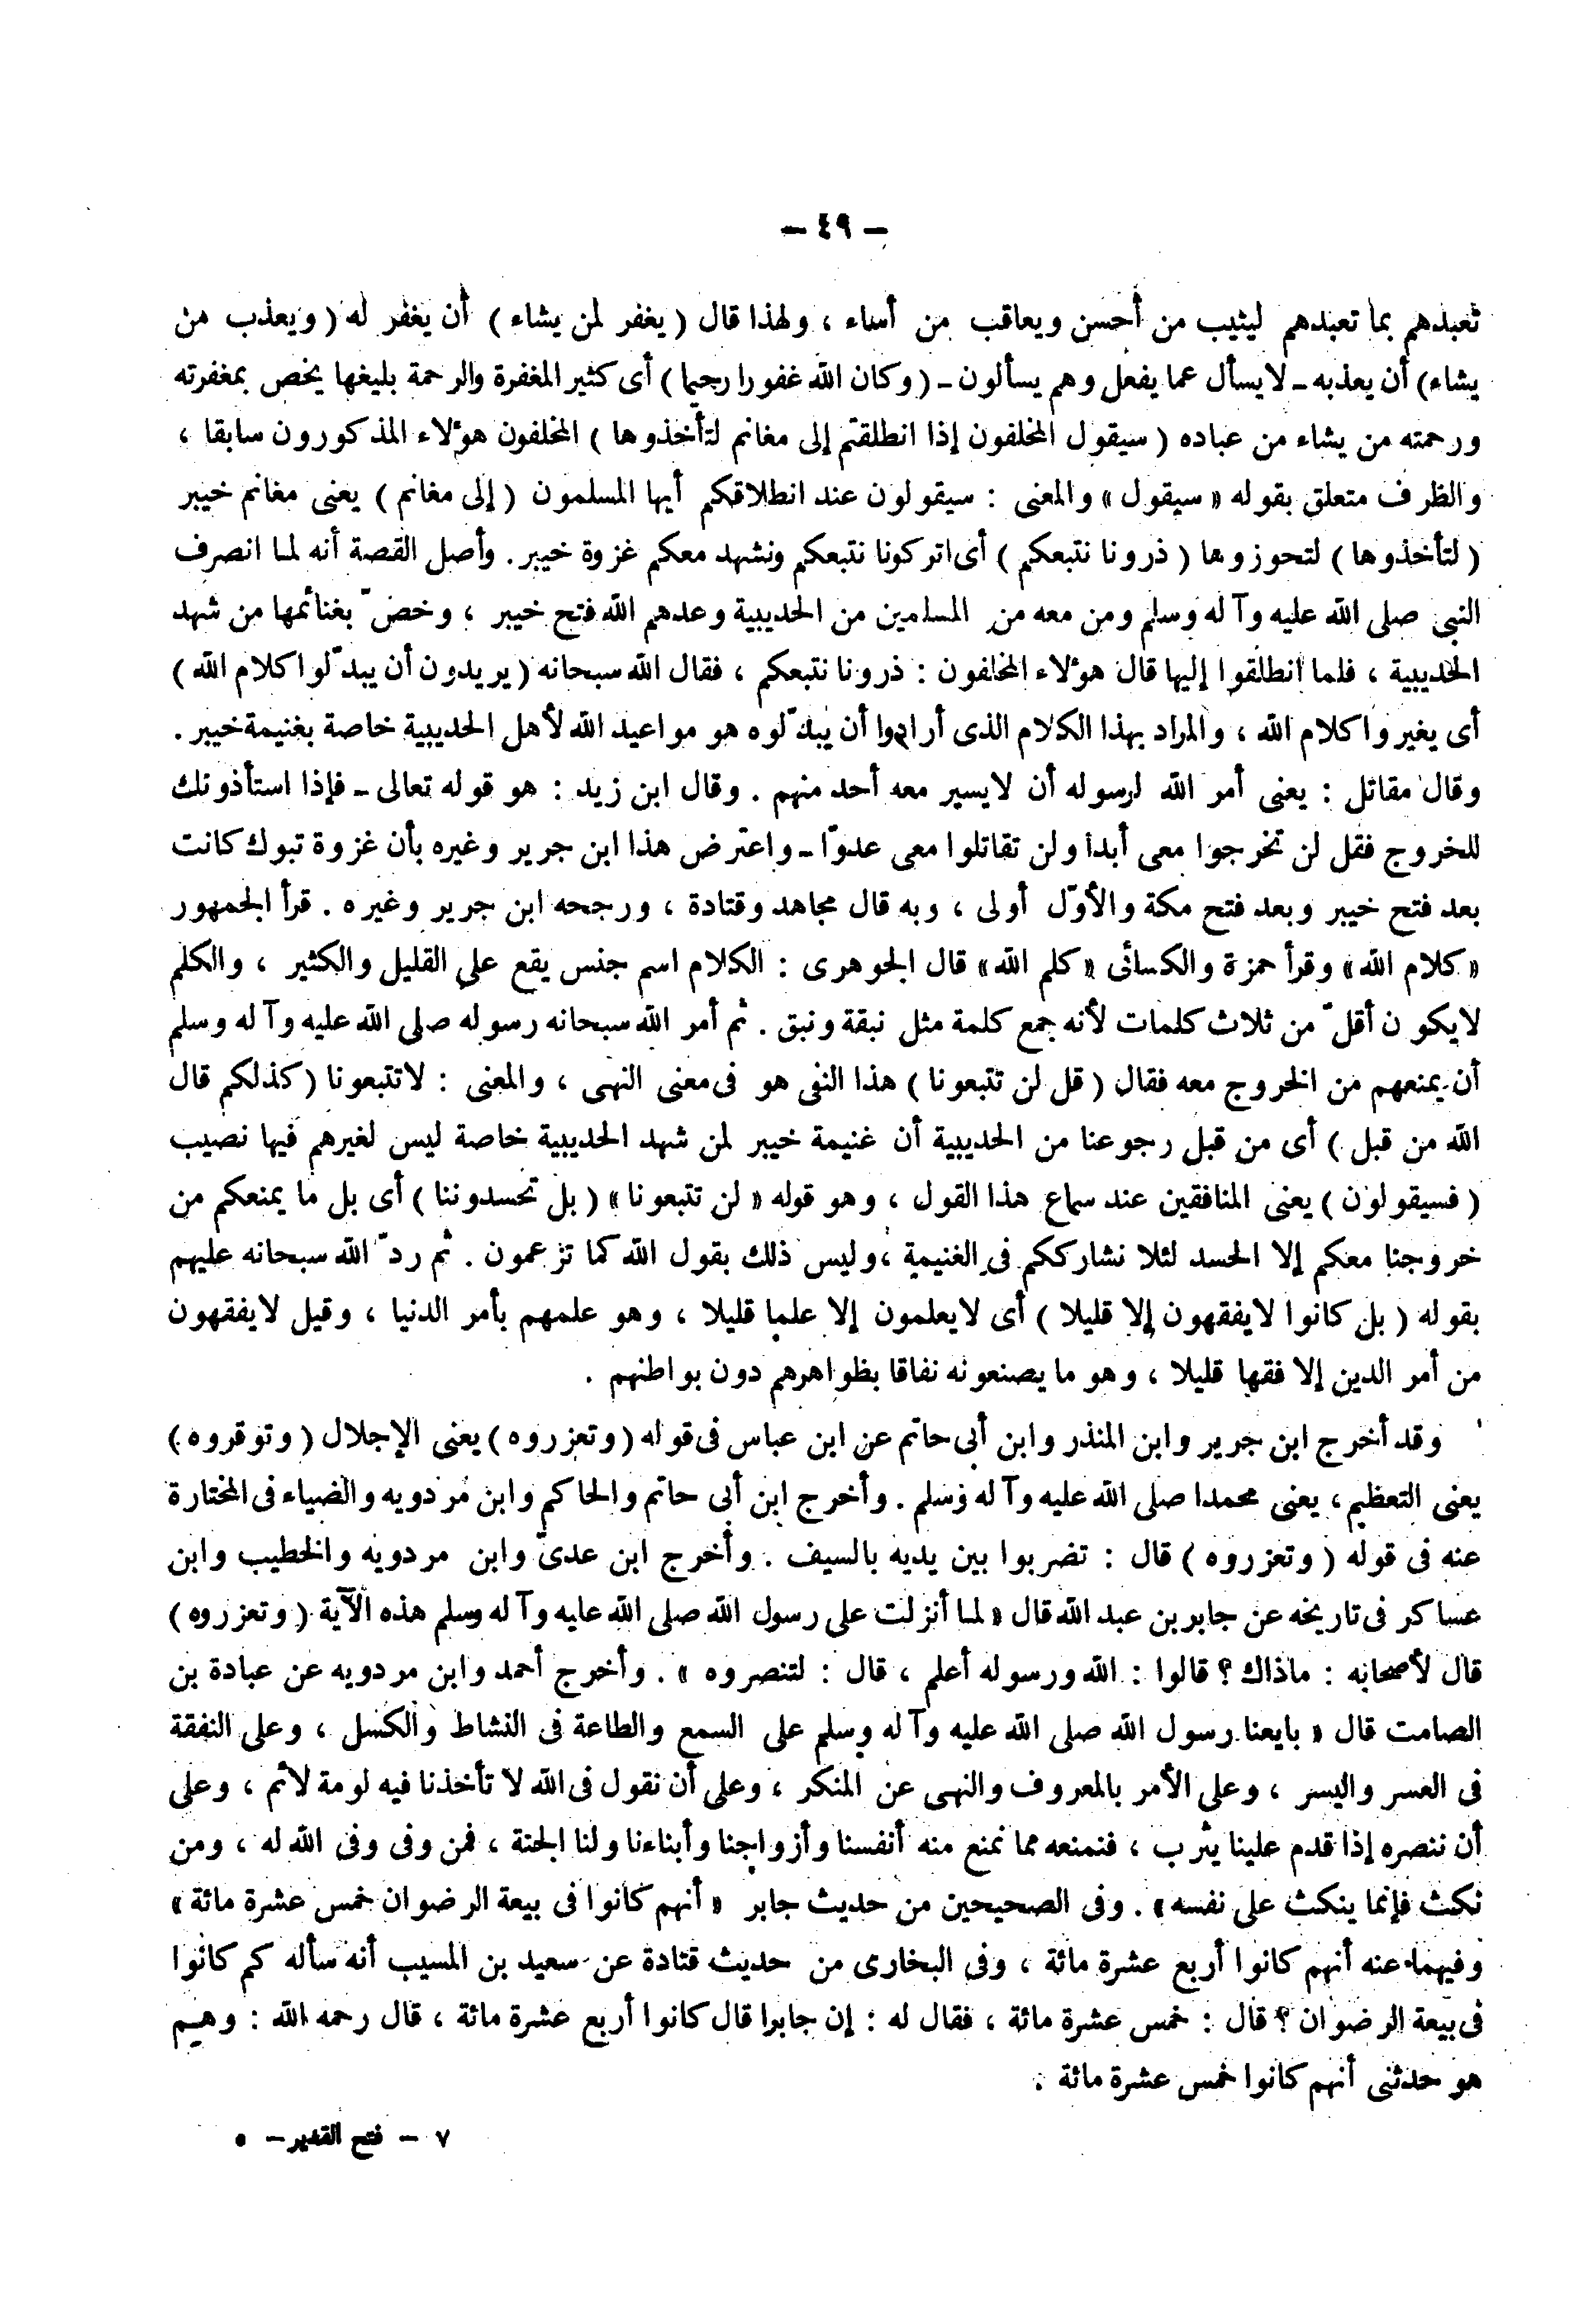 — ٤٩ —
تعبدهم بما تعبدهم ليثيب من أحسن ويعاقب من أساء ، ولهذا قال ( يغفر لمن يشاء ) أن يغفر له ( ويعذب من
يشاء ) أن يعذبه ــ لايسأل عما يفعل وهم يسألون ــ ( وكان الله غفورا رحيما ) أى كثير المغفرة والرحمة بليغها يخص بمغفرته
ورحمته من يشاء من عباده ( سيقول المخلفون إذا انطلقتم إلى مغانم لتأخذوها ) المخلفون هؤلاء المذكورون سابقا ،
والظرف متعلق بقوله « سيقول » والمعنى : سيقولون عند انطلاقكم أيها المسلمون ( إلى مغانم ) يعنى مغانم خيبر
( لتأخذوها ) لتحوزوها ( ذرونا نتبعكم ) أى اتركونا نتبعكم ونشهد معكم غزوة خيبر . وأصل القصة أنه لما انصرف
النبى صلى الله عليه وآله وسلم ومن معه من المسلمين من الحديبية وعدهم الله فتح خيبر ، وخصّ بغنائمها من شهد
الحديبية ، فلما انطلقوا إليها قال هؤلاء المخلفون : ذرونا نتبعكم ، فقال الله سبحانه ( يريدون أن يبدّلوا كلام الله )
أى يغيروا كلام الله ، والمراد بهذا الكلام الذى أرادوا أن يبدّلوه هو مواعيد الله لأهل الحديبية خاصة بغنيمة خيبر .
وقال مقاتل : يعنى أمر الله لرسوله أن لايسير معه أحد منهم . وقال ابن زيد : هو قوله تعالى ــ فإذا استأذونك
للخروج فقل لن تخرجوا معى أبدا ولن تقاتلوا معى عدوّا ــ واعترض هذا ابن جرير وغيره بأن غزوة تبوك كانت
بعد فتح خيبر وبعد فتح مكة والأوّل أولى ، وبه قال مجاهد وقتادة ، ورجحه ابن جرير وغيره . قرأ الجمهور
« كلام الله » وقرأ حمزة والكسائى « كلم الله » قال الجوهرى : الكلام اسم جنس يقع على القليل والكثير ، والكلم
لايكون أقلّ من ثلاث كلمات لأنه جمع كلمة مثل نبقة ونبق . ثم أمر الله سبحانه رسوله صلى الله عليه وآله وسلم
أن يمنعهم من الخروج معه فقال ( قل لن تتبعونا ) هذا النفى هو فى معنى النهى ، والمعنى : لاتتبعونا ( كذلكم قال
الله من قبل ) أى من قبل رجوعنا من الحديبية أن غنيمة خيبر لمن شهد الحديبية خاصة ليس لغيرهم فيها نصيب
( فسيقولون ) يعنى المنافقين عند سماع هذا القول ، وهو قوله « لن تتبعونا » ( بل تحسدوننا ) أى بل ما يمنعكم من
خروجنا معكم إلا الحسد لئلا نشارككم فى الغنيمة ، وليس ذلك بقول الله كما تزعمون . ثم ردّ الله سبحانه عليهم
بقوله ( بل كانوا لايفقهون إلا قليلا ) أى لايعلمون إلا علما قليلا ، وهو علمهم بأمر الدنيا ، وقيل لايفقهون
من أمر الدين إلا فقها قليلا ، وهو ما يصنعونه نفاقا بظواهرهم دون بواطنهم .
وقد أخرج ابن جرير وابن المنذر وابن أبى حاتم عن ابن عباس فى قوله ( وتعزروه ) يعنى الإجلال ( وتوقروه )
يعنى التعظيم ، يعنى محمدا صلى الله عليه وآله وسلم . وأخرج ابن أبى حاتم والحاكم وابن مردويه والضياء فى المختارة
عنه فى قوله ( وتعزروه ) قال : تضربوا بين يديه بالسيف . وأخرج ابن عدىّ وابن مردويه والخطيب وابن
عساكر فى تاريخه عن جابر بن عبد الله قال « لما أنزلت على رسول الله صلى الله عليه وآله وسلم هذه الآية ( وتعزروه )
قال لأصحابه : ماذاك ؟ قالوا : الله ورسوله أعلم ، قال : لتنصروه » . وأخرج أحمد وابن مردويه عن عبادة بن
الصامت قال « بايعنا رسول الله صلى الله عليه وآله وسلم على السمع والطاعة فى النشاط والكسل ، وعلى النفقة
فى العسر واليسر ، وعلى الأمر بالمعروف والنهى عن المنكر ، وعلى أن نقول فى الله لا تأخذنا فيه لومة لائم ، وعلى
أن ننصره إذا قدم علينا يثرب ، فنمنعه مما نمنع منه أنفسنا وأزواجنا وأبناءنا ولنا الجنة ، فمن وفى وفى الله له ، ومن
نكث فإنما ينكث على نفسه » . وفى الصحيحين من حديث جابر « أنهم كانوا فى بيعة الرضوان خمس عشرة مائة »
وفيهما عنه أنهم كانوا أربع عشرة مائة ، وفى البخارى من حديث قتادة عن سعيد بن المسيب أنه سأله كم كانوا
فى بيعة الرضوان ؟ قال : خمس عشرة مائة ، فقال له : إن جابرا قال كانوا أربع عشرة مائة ، قال رحمه الله : وهم
هو حدثنى أنهم كانوا خمس عشرة مائة .
٧ — فتح القدير — ٥